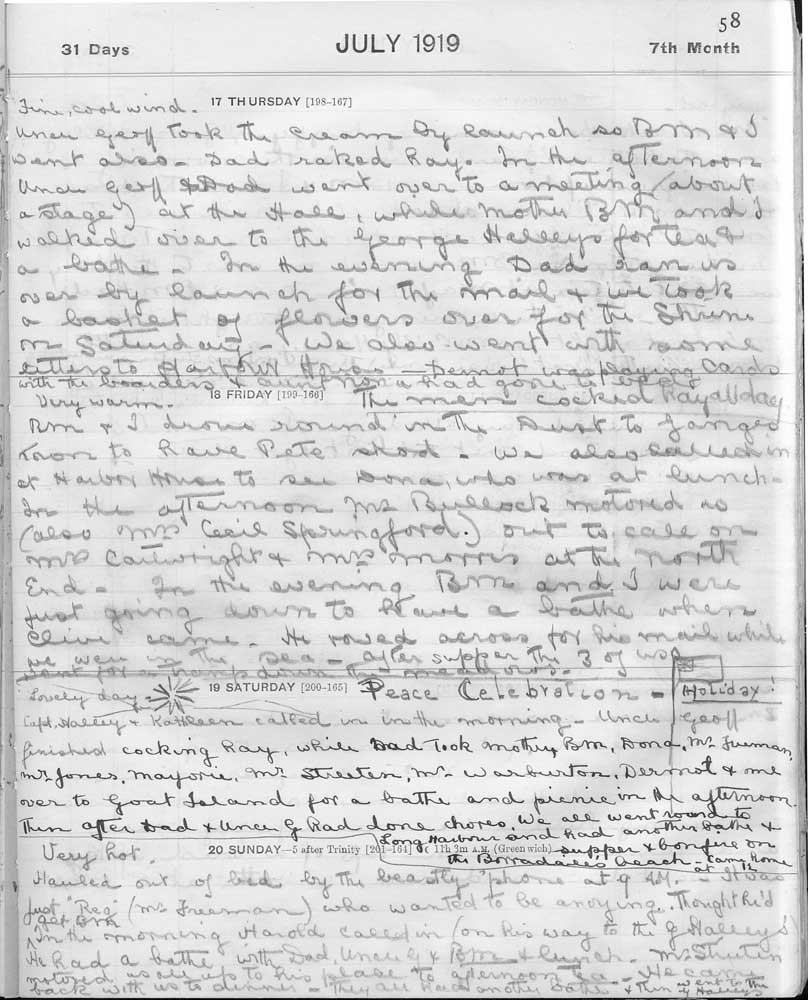 58
31 Days JULY 1919 7th Month
Fine, cool wind. 17 THURSDAY [198-167]
Uncle Geoff took the cream by launch so BM & I
went also - Dad raked hay. In the afternoon
Uncle Geoff & Dad went over to a meeting (about
a stage) at the Hall, while mother BM, and I
walked over to the George Halleys for tea &
a bathe - In the evening Dad ran us
over by launch for the mail & we took
a basket of flowers over for the Shrine
on Saturday - We also went with some
letters to Harbour House - Dermot was playing cards
with the boarders & aunt had gone to
Very warm. 18 FRIDAY [199-166] The men cocked hay all day
BM & I drove round in the Dust to Ganges
to have Pete shod. We also called in
at Harbor House to see Dona, who was at lunch -
In the afternoon Mrs Bullock motored us
(also Mrs Cecil Springford.) out to call on
Mrs Cartwright & Mrs Morris at the north
End - In the evening BM and I were
just going down to have a bathe when
Clive came - He rowed across for his mail while
we were in the sea - after supper the 3 of us
went for a tramp down the meadows -
Lovely day - 19 SATURDAY [200-165] Peace Celebration - Holiday!
Capt. Halley & Kathleen called in in the morning - Uncle Geoff
finished cocking hay, while Dad took mother, BM, Dona, Mr Freeman,
Mr Jones, Marjorie, Mr Streeten, Mr Warburton, Dermot & me
over to Goat Island for a bathe and picnic in the afternoon.
Then after Dad & Uncle G had done chores, we all went round to
Long Harbour and had another bathe &
Very hot. 20 SUNDAY-5 after Trinity [201-164] (11h 3m A.M. (Greenwich) supper & bonfire on
the Borradaile's beach - Came home
at 12
Hauled out of bed by the beastly 'phone at 9 AM. - It was
just "Reg" (Mr Freeman) who wanted to be anoying. Thought he'd
get BM
In the morning Harold called in (on his way to the G Halleys')
He had a bathe with Dad, Uncle G & BM & lunch. Mr Streeten
motored us all up to his place to afternoon tea - He came
back with us to dinner - They all had another bathe & then went to the
G Halleys